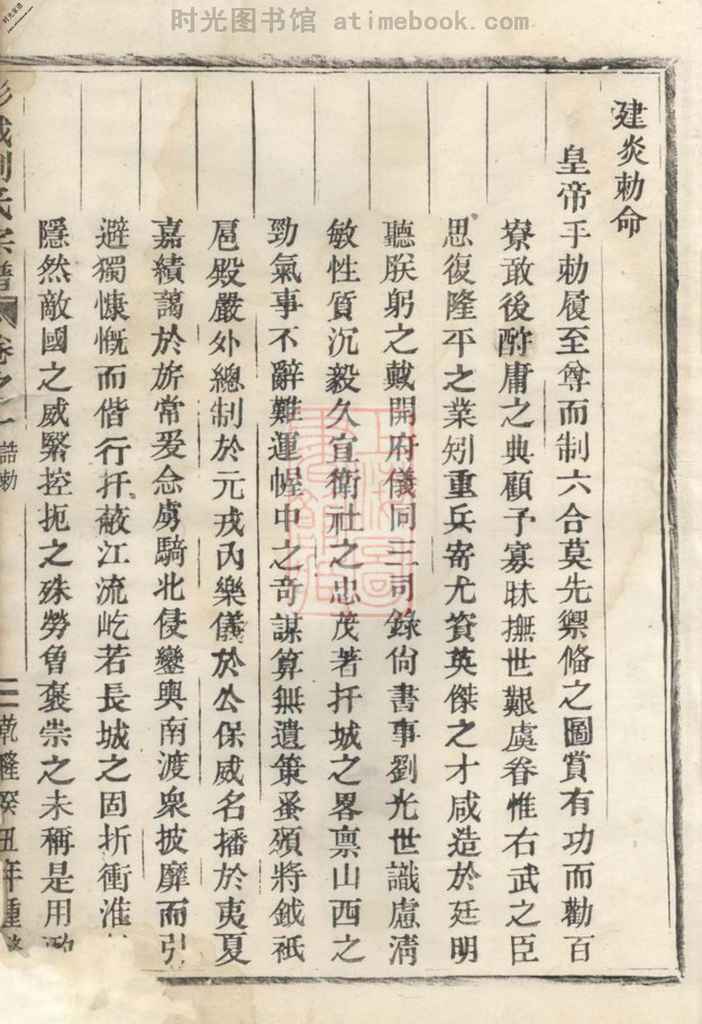 时光图书馆 atimebook.com
建炎勅命
皇帝手勅履至尊而制六合莫先禦脩之圖賞有功而勸百
寮敢後酧庸之典顧予寡昧撫世艱虞眷惟右武之臣
思復隆平之業矧重兵寄尤資英傑之才咸造於廷明
聽朕躬之戴開府儀同三司錄尙書事劉光世識慮淸
敏性質沉毅久宜衛社之忠茂著扞城之畧禀山西之
勁氣事不辭難運幄中之奇謀算無遺策蚤頒將鉞祇
扈殿嚴外總制於元戎內樂儀於公保威名播於夷夏
嘉績藹於旂常爰念虜騎北侵鑾輿南渡衆披靡而引
避獨慷慨而偕行扞蔽江流屹若長城之固折衝淮
隱然敵國之威緊控扼之殊勞魯褒崇之未稱是用
彭城劉氏宗譜 卷之一 誥勅 二 乾隆癸丑年重